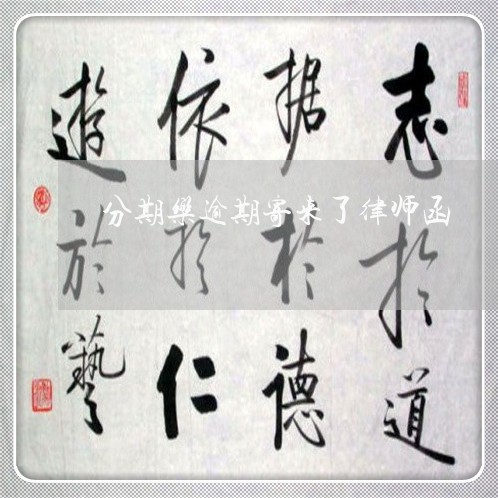 志於道
据於德
依於仁
遊於藝
分期樂逾期寄来了律师函